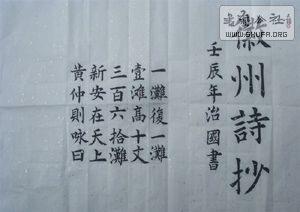 徽州詩抄
壬辰年治國書
一灘復一灘
壹滩高十丈
三百六拾灘
新安在天上
黄仲則咏曰
WWW.SHUFA.ORG